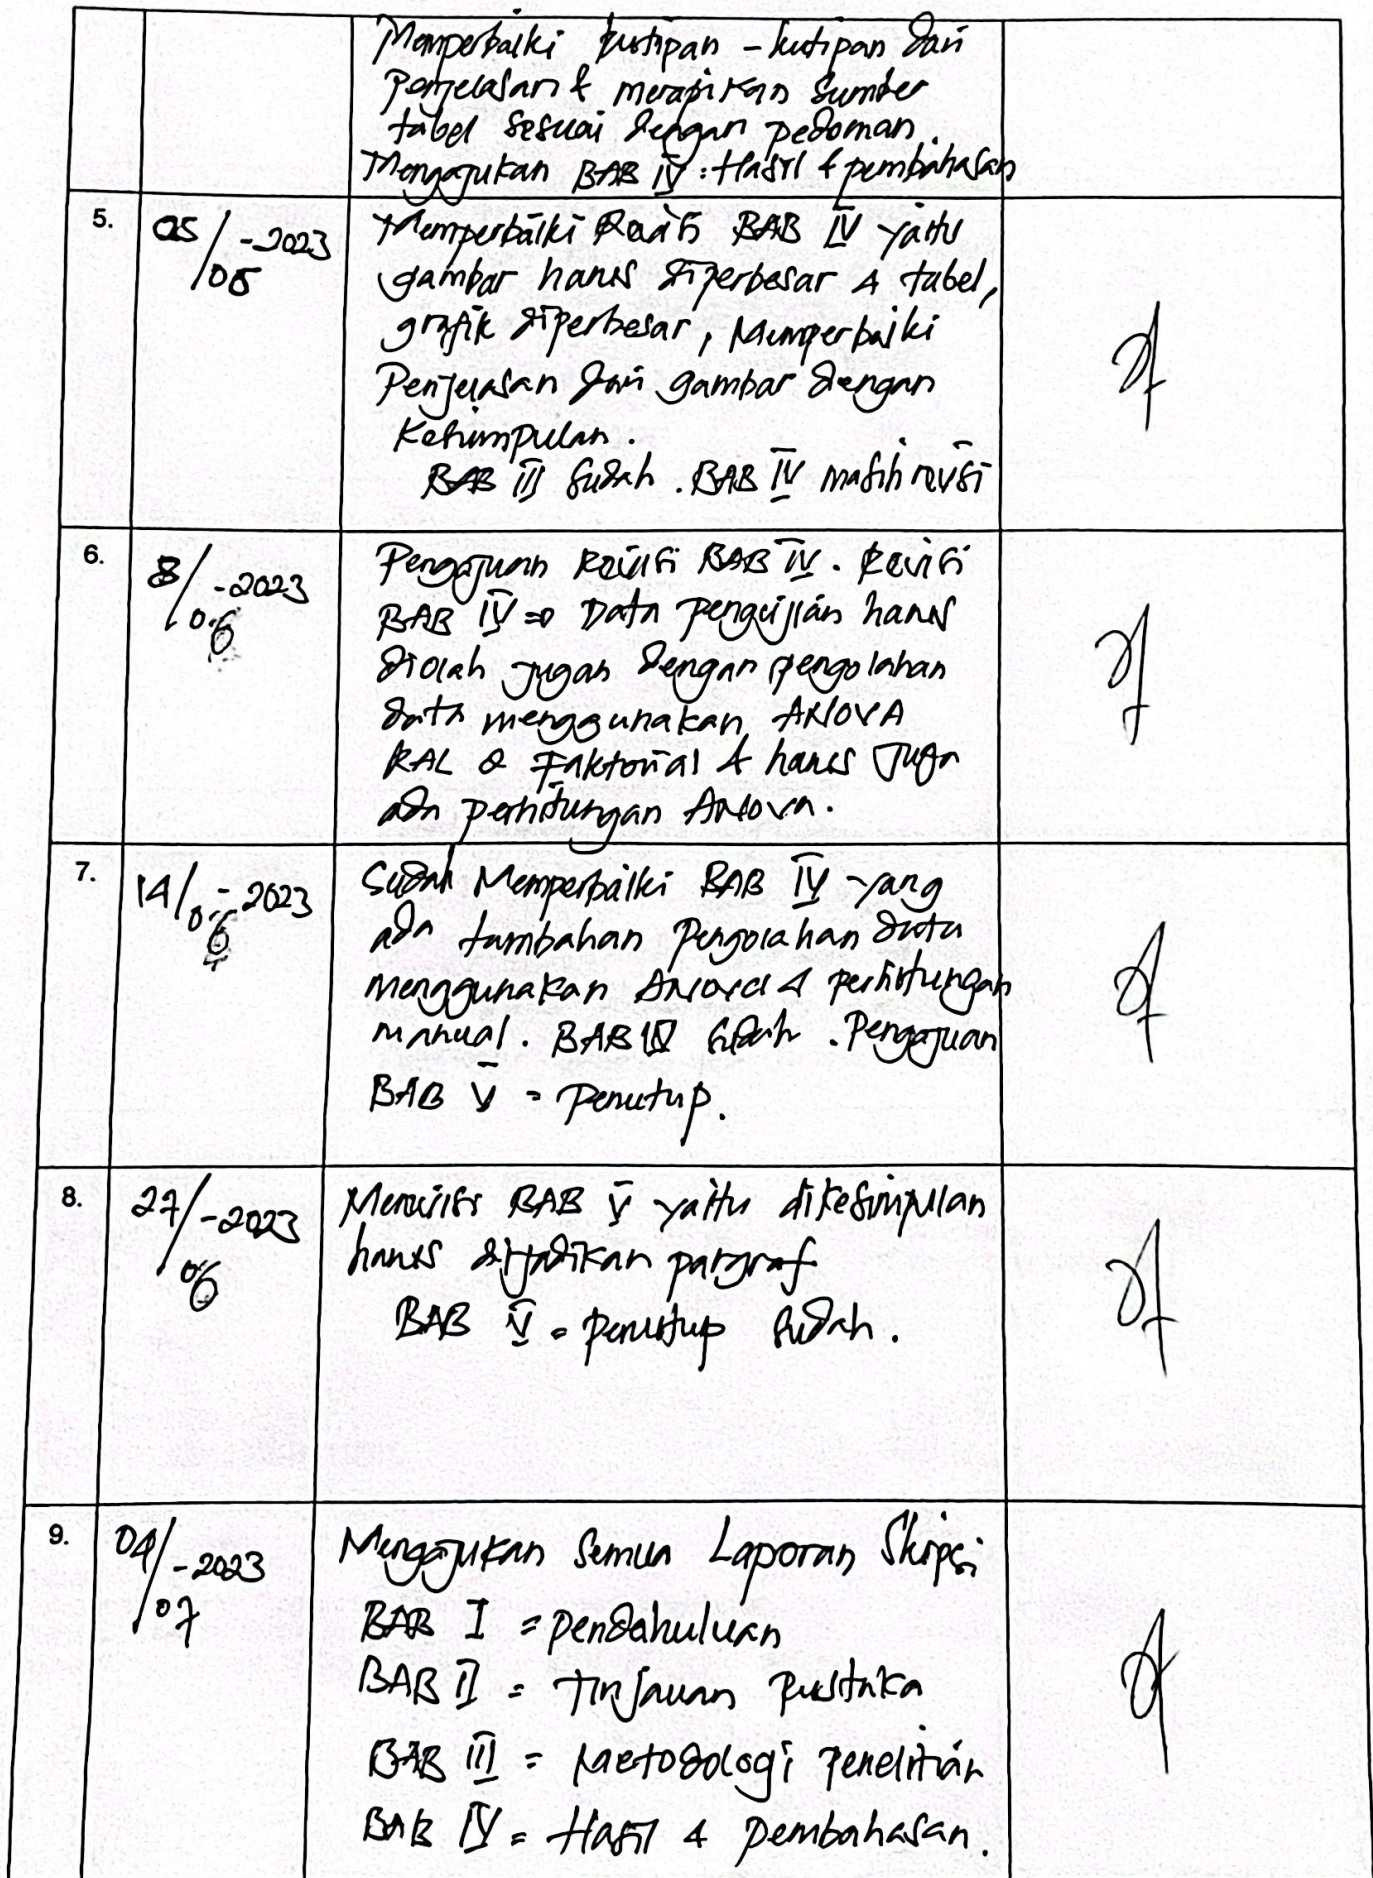 Memperbaiki kutipan - kutipan dari
Penjelasan & merapikan Sumber
tabel sesuai dengan pedoman.
Mengajukan BAB IV : Hasil & pembahasan
5. 05/06-2023 Memperbaiki Revisi BAB IV yaitu
gambar harus diperbesar & tabel,
grafik diperbesar, Memperbaiki
Penjelasan dari gambar dengan
Kesimpulan.
BAB III Sudah. BAB IV masih revisi
6. 8/06-2023 Pengajuan Revisi BAB IV. Revisi
BAB IV => Data pengujian harus
diolah jugan dengan pengolahan
data menggunakan ANOVA
RAL & Faktorial & harus Juga
ada perhitungan Anova.
7. 14/06-2023 Sudah Memperbaiki BAB IV yang
ada tambahan Pengolahan data
menggunakan Anova & perhitungan
manual. BAB IV Sudah. Pengajuan
BAB V = Penutup.
8. 27/06-2023 Merevisi BAB V yaitu dikesimpulan
harus dijadikan pargraf
BAB V = penutup Sudah.
9. 04/07-2023 Mengajukan Semua Laporan Skripsi
BAB I = pendahuluan
BAB II = Tinjauan Pustaka
BAB III = Metodologi penelitian
BAB IV = Hasil & Pembahasan.